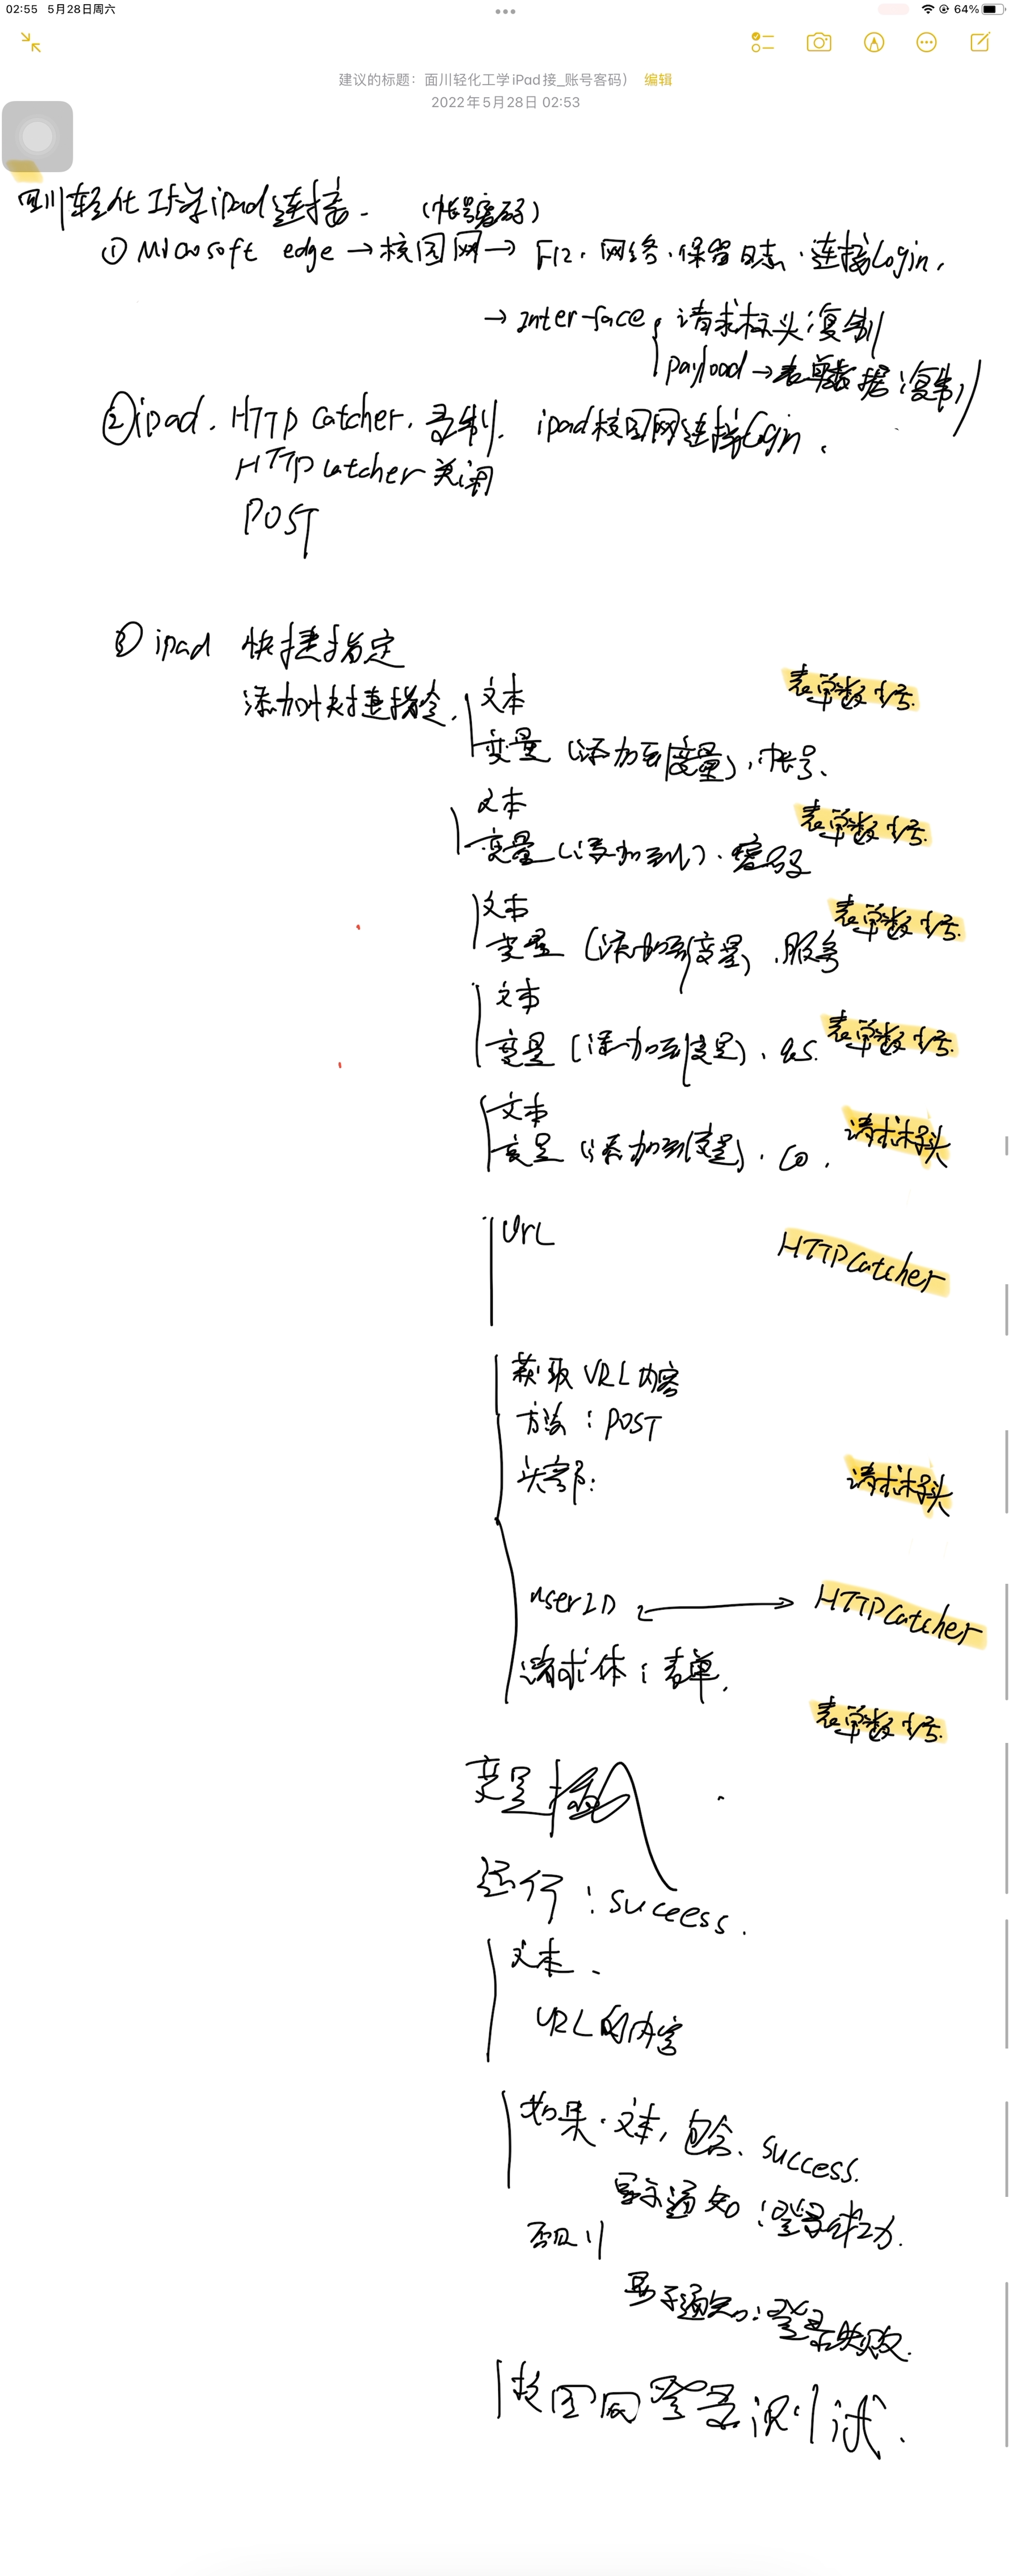 02:55 5月28日周六
64%
建议的标题：面川轻化工学iPad接_账号客码） 编辑
2022年5月28日 02:53
四川轻化工大学ipad连接. （帐号密码）
① Microsoft edge → 校园网 → F12. 网络. 保留日志. 连接login.
→ Interface 请求标头：复制
payload → 表单数据：复制
② ipad. HTTP Catcher. 录制. ipad校园网连接login.
HTTP Catcher 关闭
POST
③ ipad 快捷指定
添加快捷指令.
文本
表单数据
变量（添加到变量）. 帐号.
文本
表单数据
变量（添加到）. 密码
文本
表单数据
变量（添加到变量）. 服务
文本
变量（添加到变量）. qs.
表单数据
文本
请求标头
变量（添加到变量）. co.
URL
HTTPCatcher
获取URL内容
方法：POST
头部：
请求标头
userID
HTTPCatcher
请求体：表单.
表单数据
变量
运行：success.
文本.
URL的内容
如果. 文本, 包含. success.
显示通知：登录成功.
否则
显示通知：登录失败.
校园网登录测试.